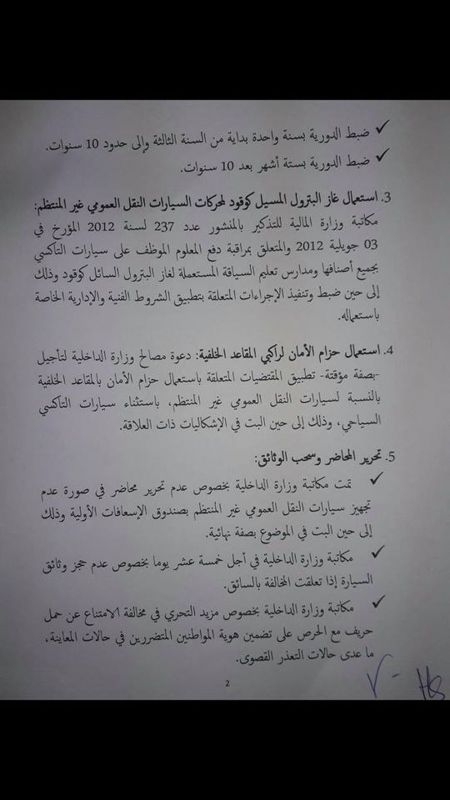 ✓ ضبط الدورية بسنة واحدة بداية من السنة الثالثة وإلى حدود 10 سنوات.
✓ ضبط الدورية بستة أشهر بعد 10 سنوات.
3. استعمال غاز البترول المسيل كوقود لمحركات السيارات النقل العمومي غير المنتظم:
مكاتبة وزارة المالية للتذكير بالمنشور عدد 237 لسنة 2012 المؤرخ في
03 جويلية 2012 والمتعلق بمراقبة دفع المعلوم الموظف على سيارات التاكسي
بجميع أصنافها ومدارس تعليم السياقة المستعملة لغاز البترول السائل كوقود وذلك
إلى حين ضبط وتنفيذ الإجراءات المتعلقة بتطبيق الشروط الفنية والإدارية الخاصة
باستعماله.
4. استعمال حزام الأمان لراكبي المقاعد الخلفية: دعوة مصالح وزارة الداخلية لتأجيل
-بصفة مؤقتة- تطبيق المقتضيات المتعلقة باستعمال حزام الأمان بالمقاعد الخلفية
بالنسبة لسيارات النقل العمومي غير المنتظم، باستثناء سيارات التاكسي
السياحي، وذلك إلى حين البت في الإشكاليات ذات العلاقة.
5. تحرير المحاضر وسحب الوثائق:
✓ تمت مكاتبة وزارة الداخلية بخصوص عدم تحرير محاضر في صورة عدم
تجهيز سيارات النقل العمومي غير المنتظم بصندوق الإسعافات الأولية وذلك
إلى حين البت في الموضوع بصفة نهائية.
✓ مكاتبة وزارة الداخلية في أجل خمسة عشر يوما بخصوص عدم حجز وثائق
السيارة إذا تعلقت المخالفة بالسائق.
✓ مكاتبة وزارة الداخلية بخصوص مزيد التحري في مخالفة الامتناع عن حمل
حريف مع الحرص على تضمين هوية المواطنين المتضررين في حالات المعاينة،
ما عدى حالات التعذر القصوى.
2